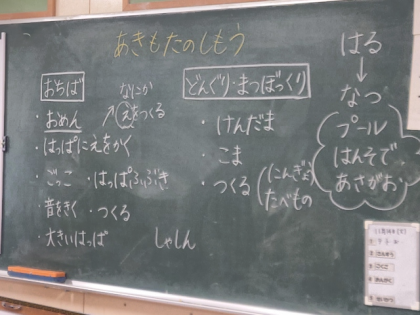 あきもたのしもう
おちば
なにか
えをつくる
・おめん
・はっぱにえをかく
・ごっこ ・はっぱふぶき
・音をきく ・つくる
・大きいはっぱ しゃしん
どんぐり・まつぼっくり
・けんだま
・こま
・つくる(にんぎょう
たべもの
はる
↓
なつ
プール
はんそで
あさがお